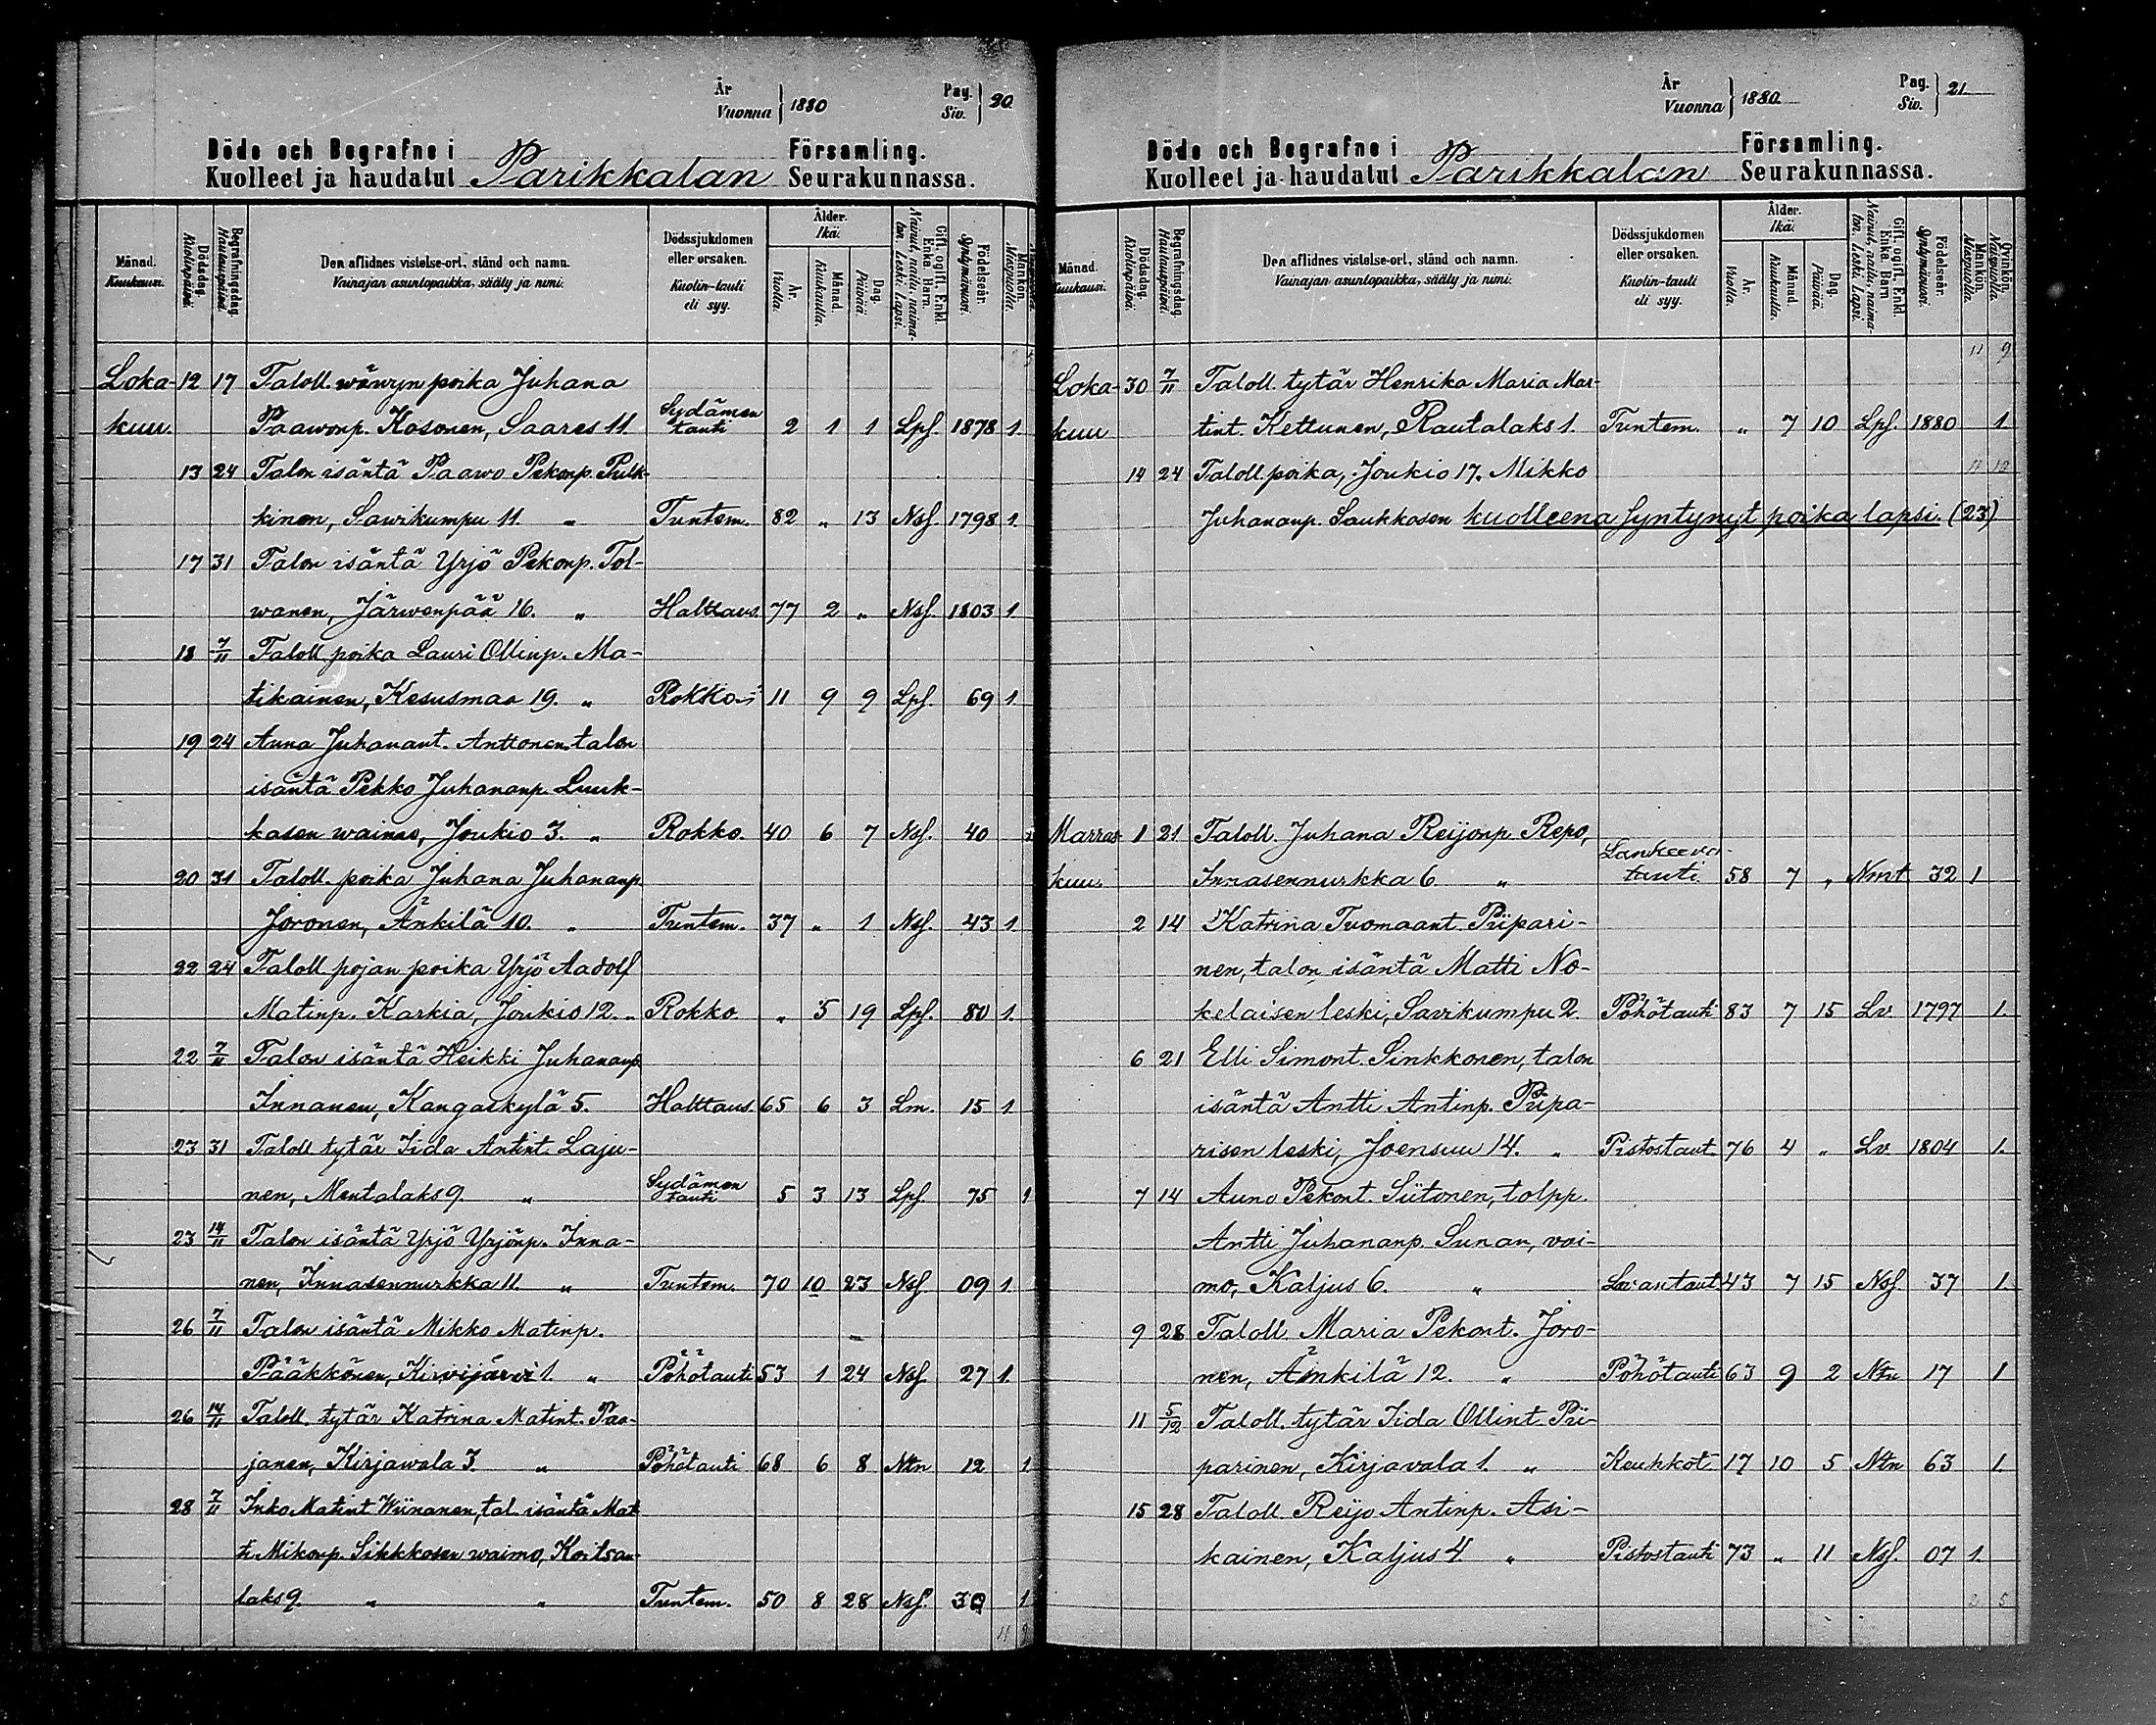 År
Vuonna } 1880
Pag.
Siv. } 20.
Döde och Begrafne i Församling.
Kuolleet ja haudatut Parikkalan Seurakunnassa.
Månad. Kuukausi.
Dödsdag. Kuolinpäivä.
Begrafningsdag. Hautauspäivä.
Den aflidnes vistelse-ort, stånd och namn.
Vainajan asuntopaikka, sääty ja nimi.
Dödssjukdomen eller orsaken.
Kuolin-tauti eli syy.
Ålder. Ikä.
År. Vuotta.
Månad. Kuukautta.
Dag. Päivää.
Gift, ogift, Enkl. Enka. Barn.
Nainut, naitu, naimaton. Leski. Lapsi.
Födelseår. Syntymävuosi.
Mankön. Miespuolia.
Loka- 12 17 Taloll. wäwyn poika Juhana
kuu. Paawonp. Kosonen, Saares 11. Sydämen tauti 2 1 1 Lpf. 1878 1.
13 24 Talon isäntä Paawo Pekonp. Pulk-
kinen, Sawikumpu 11. " Tuntem. 82 " 13 Nsf. 1798 1.
17 31 Talon isäntä Yrjö Pekonp. Tol-
wanen, Järwenpää 16. " Halttaus. 77 2 " Nsf. 1803 1.
18 7/11 Taloll. poika Lauri Ollinp. Ma-
tikainen, Kesusmaa 19. " Rokko 11 9 9 Lpf. 69 1.
19 24 Anna Juhanant. Anttonen talon
isäntä Pekko Juhananp. Luuk-
kasen waimo, Joukio 3. " Rokko. 40 6 7 Nsf. 40
20 31 Taloll. poika Juhana Juhananp.
Joronen, Änkilä 10. " Tuntem. 37 " 1 Nsf. 43 1.
22 24 Taloll. pojan poika Yrjö Aadolf
Matinp. Karkia, Joukio 12. " Rokko. " 5 19 Lpf. 80 1.
22 7/11 Talon isäntä Heikki Juhananp.
Innanen, Kangaskylä 5. Halttaus. 65 6 3 Lm. 15 1
23 31 Taloll. tytär Iida Antint. Laju-
nen, Mentalaks 9. " Sydämen tauti 5 3 13 Lpf. 75 1
23 14/11 Talon isäntä Yrjö Yrjönp. Inna-
nen, Innasennurkka 11. " Tuntem. 70 10 23 Nsf. 09 1.
26 7/11 Talon isäntä Mikko Matinp.
Pääkkönen, Kirvijärvi 1. " Pöhötauti 53 1 24 Nsf. 27 1.
26 14/11 Taloll. tytär Katrina Matint. Paa-
janen, Kirjawala 3. " Pöhötauti 68 6 8 Ntn 12 1
28 7/11 Inko Matint. Wiinanen, tal. isäntä Mat-
ti Mikonp. Sikkkosen waimo, Koitsan-
laks 9. " " Tuntem. 50 8 28 Nsf. 30 1
År
Vuonna } 1880.
Pag.
Siv. } 21.
Döde och Begrafne i Församling.
Kuolleet ja haudatut Parikkalan Seurakunnassa.
Månad. Kuukausi.
Dödsdag. Kuolinpäivä.
Begrafningsdag. Hautauspäivä.
Den aflidnes vistelse-ort, stånd och namn.
Vainajan asuntopaikka, sääty ja nimi.
Dödssjukdomen eller orsaken.
Kuolin-tauti eli syy.
Ålder. Ikä.
År. Vuotta.
Månad. Kuukautta.
Dag. Päivää.
Gift, ogift, Enkl. Enka. Barn
Nainut, naitu, naimaton. Leski. Lapsi.
Födelseår. Syntymävuosi.
Mankön. Miespuolia.
Qvinkön. Naispuolia.
11 9
Loka- 30 7/11 Taloll. tytär Henrika Maria Mar-
kuu tint. Kettunen, Rautalaks 1. Tuntem. " 7 10 Lpf. 1880 1.
14 24 Taloll. poika, Joukio 17. Mikko 11 10
Juhananp. Saukkosen kuolleena syntynyt poika lapsi. (23)
Marras 1 21 Taloll. Juhana Reijonp. Repo,
kuu. Innasennurkka 6 " tauti 58 7 " Nmt 32 1
2 14 Katrina Tuomaant. Piipari-
nen, talon isäntä Matti No-
kelaisen leski, Savikumpu 2. Pöhötauti 83 7 15 Lv 1797 1.
6 21 Elli Simont. Sinkkonen, talon
isäntä Antti Antinp. Piipa-
risen leski, Joensuu 14. " Pistostaut. 76 4 " Lv 1804 1.
7 14 Auno Pekont. Siitonen, tolpp.
Antti Juhananp. Sunan, vai-
mo, Kaljus 6. " Lavantaut. 43 7 15 Nsf. 37 1.
9 28 Taloll. Maria Pekont. Joro-
nen, Änkilä 12. " Pöhötauti 63 9 2 Ntn 17 1
11 5/12 Taloll. tytär Iida Ollint. Pii-
parinen, Kirjavala 1. " Keuhkot. 17 10 5 Ntn 63 1.
15 28 Taloll. Reijo Antinp. Asi-
kainen, Kaljus 4 " Pistostauti 73 " 11 Nsf. 07 1.
2 5